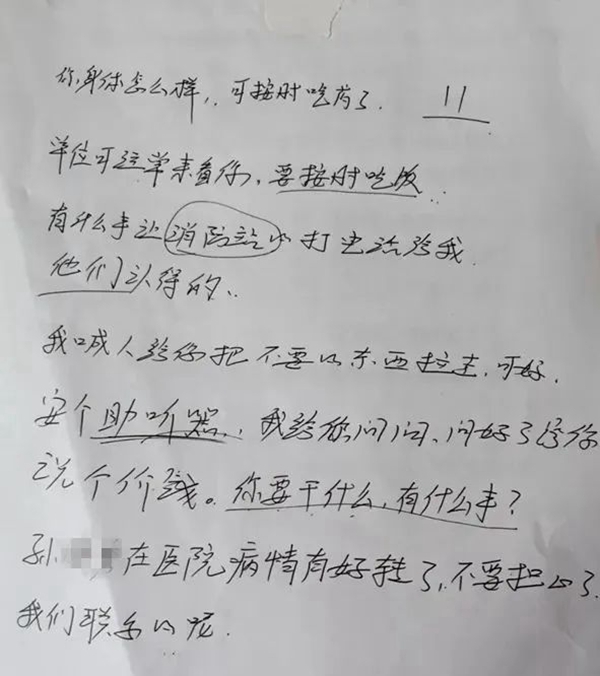 你身体怎么样,可按时吃药了. 11
单位可经常来看你,要按时吃饭.
有什么事让消防站的打电话给我
他们认得的.
我喊人给你把不要的东西拉走.可好.
安个助听器,我给你问问、问好了给你
说个价钱。你要干什么,有什么事?
孙 在医院病情有好转了,不要担心了.
我们联系的呢.